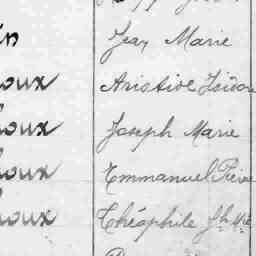 in Jean Marie
oux Aristide Isidore
oux Joseph Marie
oux Emmanuel Pierre
oux Théophile Jh Mie